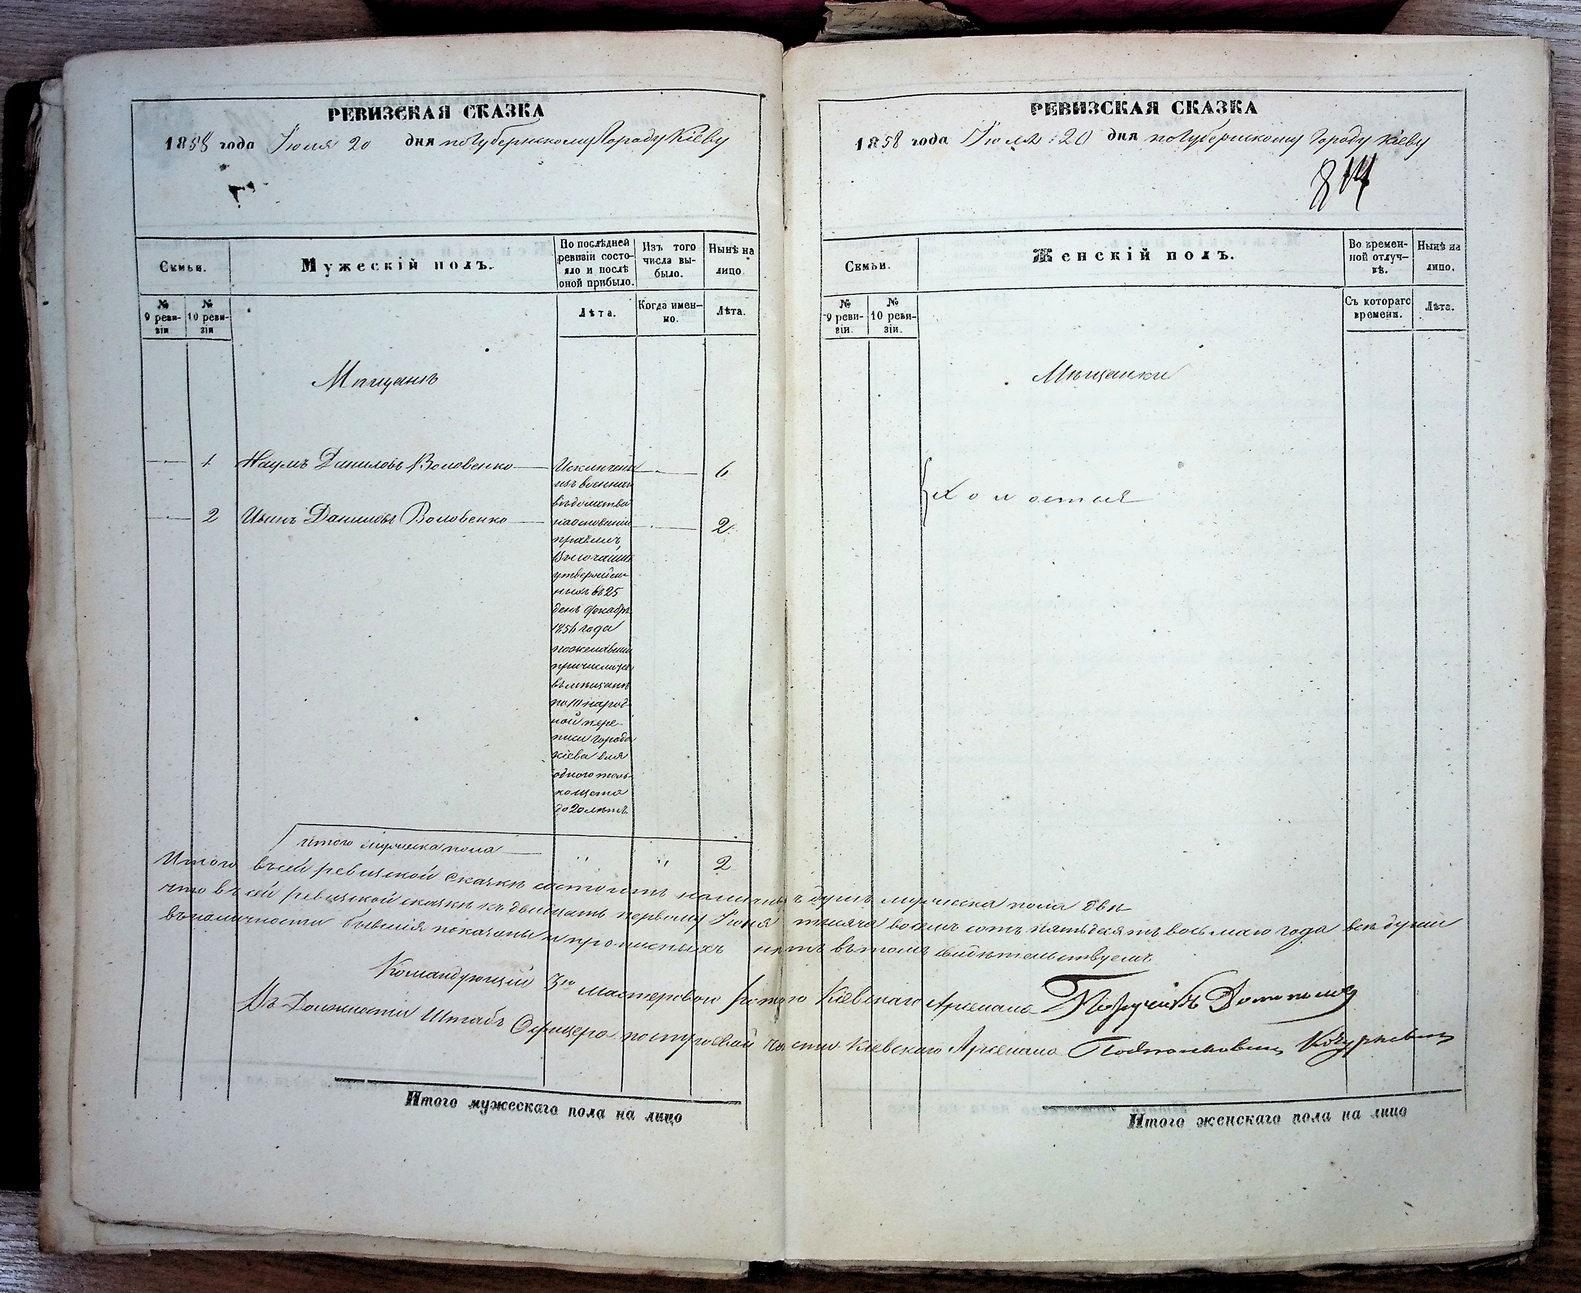 РЕВИЗСКАЯ СКАЗКА
1858 года Іюня 20 дня по Губернскому Городу Кіеву
Семьи.
Мужескій полъ.
По послѣдней ревизіи состояло и послѣ оной прибыло.
Изъ того числа выбыло.
Нынѣ на лицо.
№ 9 ревизіи
№ 10 ревизіи
Лѣта.
Когда именно.
Лѣта.
Мѣщанъ
1 Наумъ Даниловъ Воловенко 6
2 Иванъ Даниловъ Воловенко 2
Исключены
изъ военнаго
вѣдомства
на основаніи
правилъ
Высочайше
утвержден-
ныхъ въ 25
день декабря
1856 года
пожелавшіе
причислиться
въ мѣщане
по 10 народ-
ной пере-
писи города
Кіева для
одного толь-
ко щета
до 20 лѣтъ
Итого мужеска пола " " 2
Итого въ сей ревизской сказкѣ состоитъ наличныхъ душъ мужеска пола двѣ
что въ сей ревизской сказкѣ къ двадцать первому Іюня тысяча восемь сотъ пятьдесятъ восьмаго года всѣ души
въ наличности бывшія показаны и прописныхъ нѣтъ въ томъ свидѣтельствуемъ
Командующій 3ю мастеровою ротою Кіевскаго Арсенала Поручикъ
Въ Должности Штабъ Офицера по строевой части Кіевскаго Арсенала Подполковникъ
Итого мужескаго пола на лицо
РЕВИЗСКАЯ СКАЗКА
1858 года Іюля 20 дня по Губернскому Городу Кіеву
814
Семьи.
Женскій полъ.
Во временной отлучкѣ.
Нынѣ на лицо.
№ 9 ревизіи.
№ 10 ревизіи.
Съ котораго времени.
Лѣта.
Мѣщанки
Холостые
Итого женскаго пола на лицо